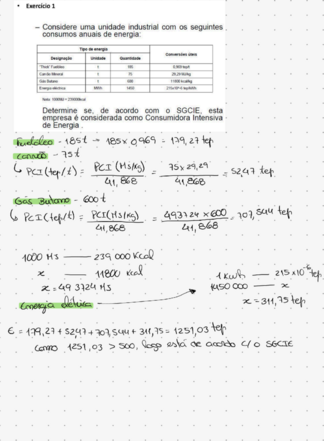 • Exercício 1
– Considere uma unidade industrial com os seguintes
consumos anuais de energia:
Tipo de energia
Conversões úteis
Designação Unidade Quantidade
t 185
Carvão Mineral t 75
Gás Butano t 600
Energia eléctrica MWh 1450
Determine se, de acordo com o SGCIE, esta
empresa é considerada como Consumidora Intensiva
de Energia .
Fuelóleo - 185t → 185 x 0,969 = 179,27 tep
carvão - 75t
↳ PCI (tep/t) = PCI (MJ/kg) / 41,868 = 75 x 29,29 / 41,868 = 52,47 tep
Gás Butano - 600t
↳ PCI (tep/t) = PCI (MJ/kg) / 41,868 = 49,3724 x 600 / 41,868 = 707,544 tep
1000 MJ —— 239 000 Kcal
x —— 11800 kcal
x = 49,3724 MJ
1 kwh —— 215 x 10⁻⁶ tep
1450 000 —— x
x = 311,75 tep
Energia elétrica
E = 179,27 + 52,47 + 707,544 + 311,75 = 1251,03 tep
Como 1251,03 > 500, logo está de acordo c/ o SGCIE